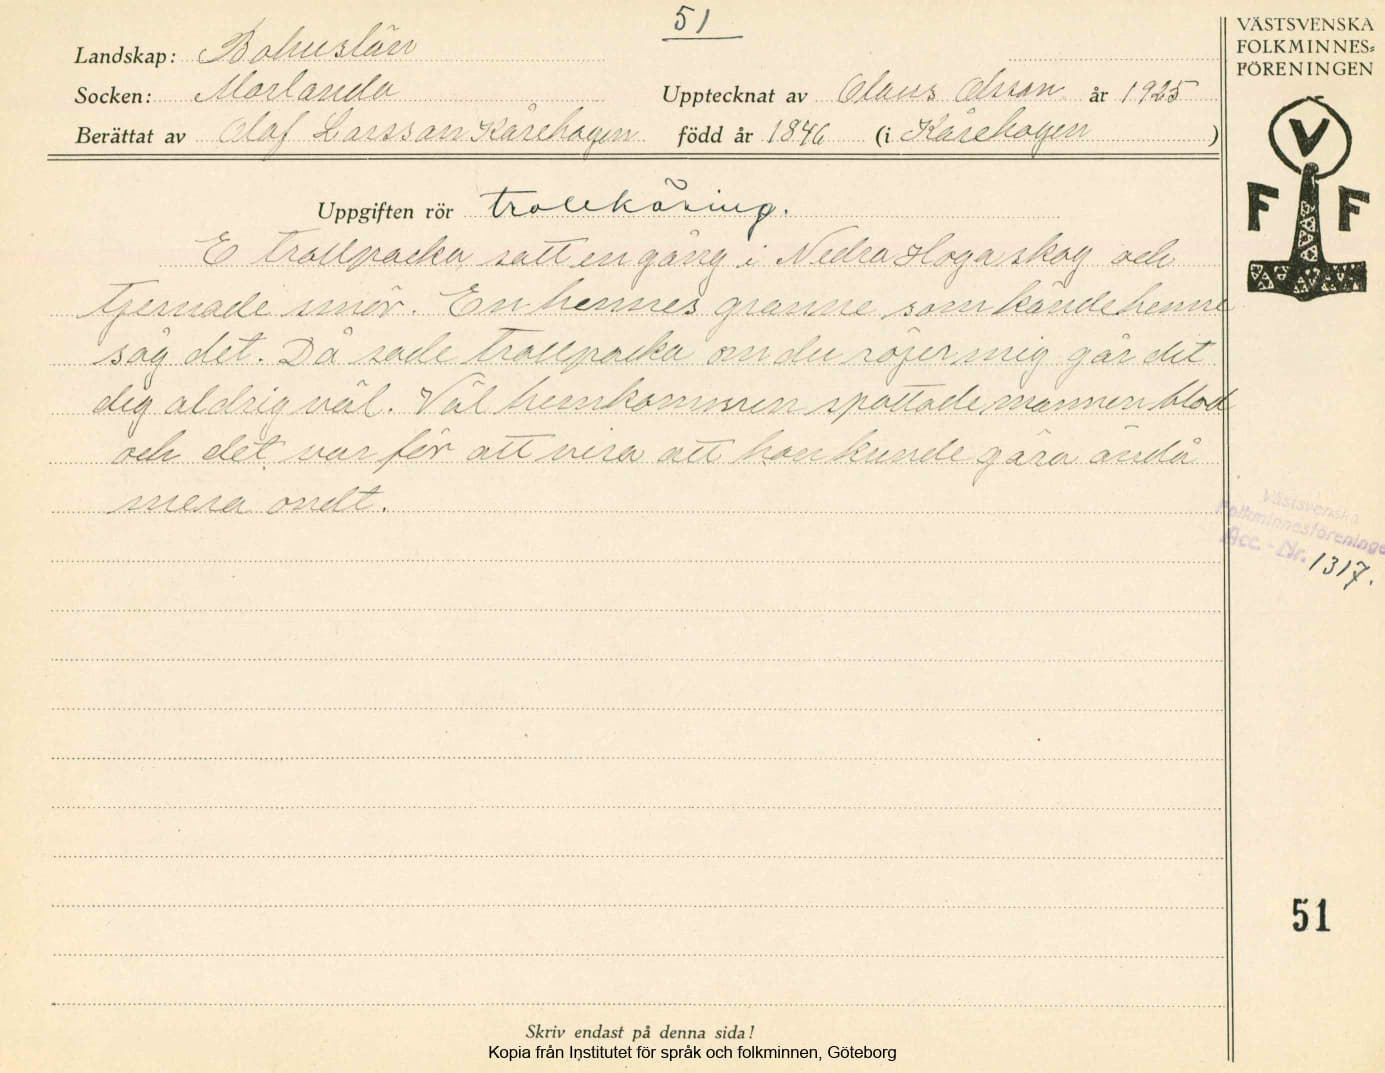 51
VÄSTSVENSKA
FOLKMINNES=
FÖRENINGEN
Landskap: Bohuslän
Socken: Morlanda
Upptecknat av Olaus Olsson år 1925
Berättat av Olof Larsson Kårehogen född år 1846 (i Kårehogen )
V
F F
Uppgiften rör trollkäring.
E trollpacka satt en gång i Nedra Hoga skog och
tjernade smör. En hennes granne som kände henne
såg det. Då sade trollpacka om du röjer mig går det
dig aldrig väl. Väl hemkommen spottade mannen blod
och det var för att visa att hon kunde göra ändå
mera ondt.
Västsvenska
Folkminnesföreningen
Acc.-Nr. 1317.
51
Skriv endast på denna sida!
Kopia från Institutet för språk och folkminnen, Göteborg